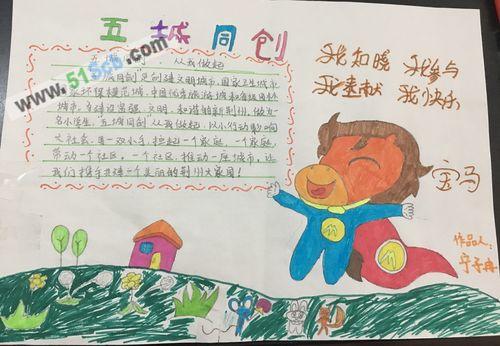 五城同创
www.515
从我做起
五城同创是创建文明城市、国家卫生城市
家环保模范城、中国优秀旅游城和省级园林
城市。
名小学生，五城同创从我做起，以小行动影响
大社会。用一双小手，撑起一个家庭，一个家庭，
带动一个社区，一个社区，推动一座城市，让
我们携手共建一个美丽的荆州大家园！
我知晓 我参与
我奉献 我快乐
宝马
作品人：